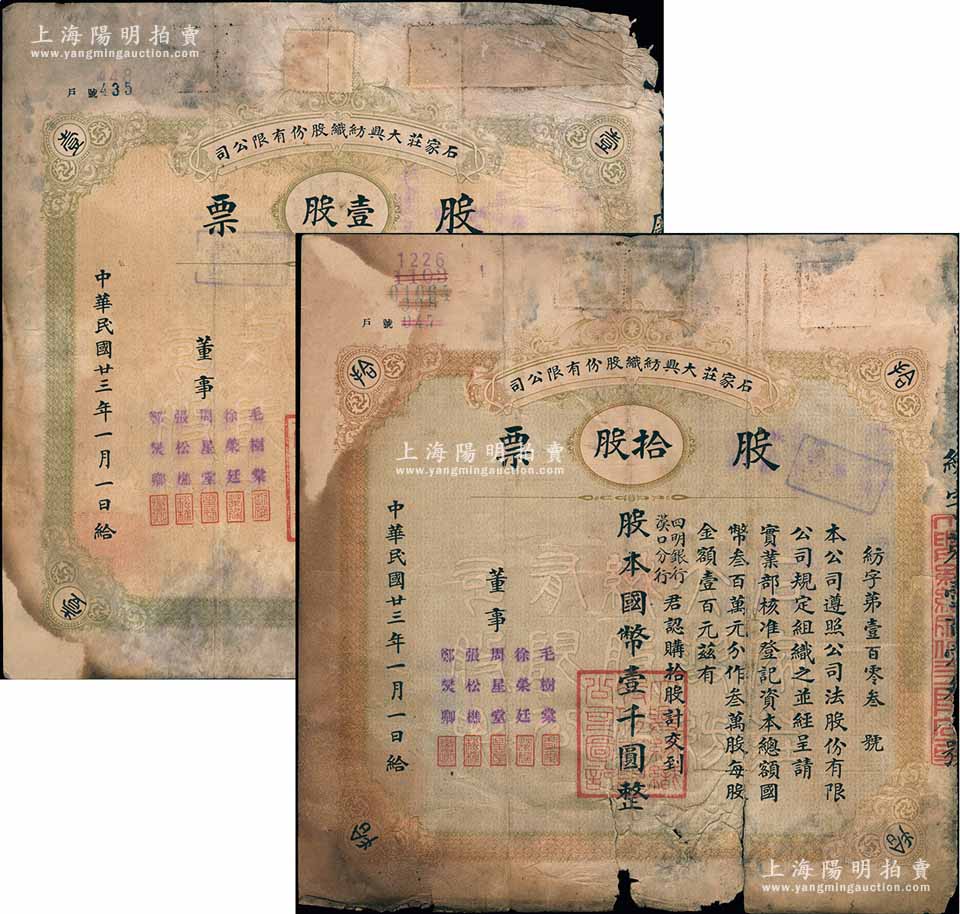 上海陽明拍賣
www.yangmingauction.com
435
戶號
壹
壹
石家莊大興紡織股份有限公司
股票
壹股
董事
毛樹棠
徐榮廷
周星堂
張松樵
鄭燮卿
中華民國廿三年一月一日給
壹
1226
1103
戶號
047
拾
拾
石家莊大興紡織股份有限公司
股票
拾股
紡字第壹百零叁號
本公司遵照公司法股份有限
公司規定組織之並經呈請
實業部核准登記資本總額國
幣叁百萬元分作叁萬股每股
金額壹百元茲有
四明銀行
漢口分行
君認購拾股計交到
股本國幣壹千圓整
董事
毛樹棠
徐榮廷
周星堂
張松樵
鄭燮卿
中華民國廿三年一月一日給
拾
拾
上海陽明拍賣
www.yangmingauction.com
上海陽明拍賣
www.yangmingauction.com